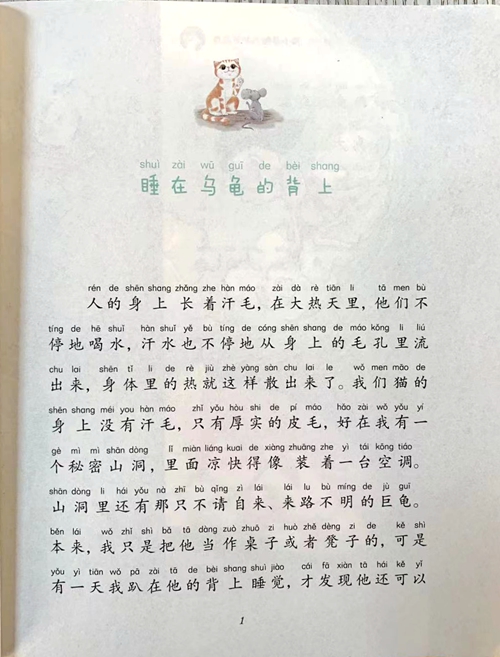 shuì zài wū guī de bèi shang
睡在乌龟的背上
rén de shēn shang zhǎng zhe hàn máo zài dà rè tiān li tā men bù
人的身上长着汗毛，在大热天里，他们不
tíng de hē shuǐ hàn shuǐ yě bù tíng de cóng shēn shang de máo kǒng li liú
停地喝水，汗水也不停地从身上的毛孔里流
chu lai shēn tǐ li de rè jiù zhè yàng sàn chu lai le wǒ men māo de
出来，身体里的热就这样散出来了。我们猫的
shēn shang méi you hàn máo zhǐ yǒu hòu shi de pí máo hǎo zài wǒ yǒu yí
身上没有汗毛，只有厚实的皮毛，好在我有一
gè mì mì shān dòng lǐ miàn liáng kuai de xiàng zhuāng zhe yì tái kōng tiáo
个秘密山洞，里面凉快得像装着一台空调。
shān dòng li hái yǒu nà zhī bù qǐng zì lái lái lù bù míng de jù guī
山洞里还有那只不请自来、来路不明的巨龟。
běn lái wǒ zhǐ shì bǎ tā dàng zuò zhuō zi huò zhě dèng zi de kě shì
本来，我只是把他当作桌子或者凳子的，可是
yǒu yì tiān wǒ pā zài tā de bèi shang shuì jiào cái fā xiàn tā hái kě yǐ
有一天我趴在他的背上睡觉，才发现他还可以
1